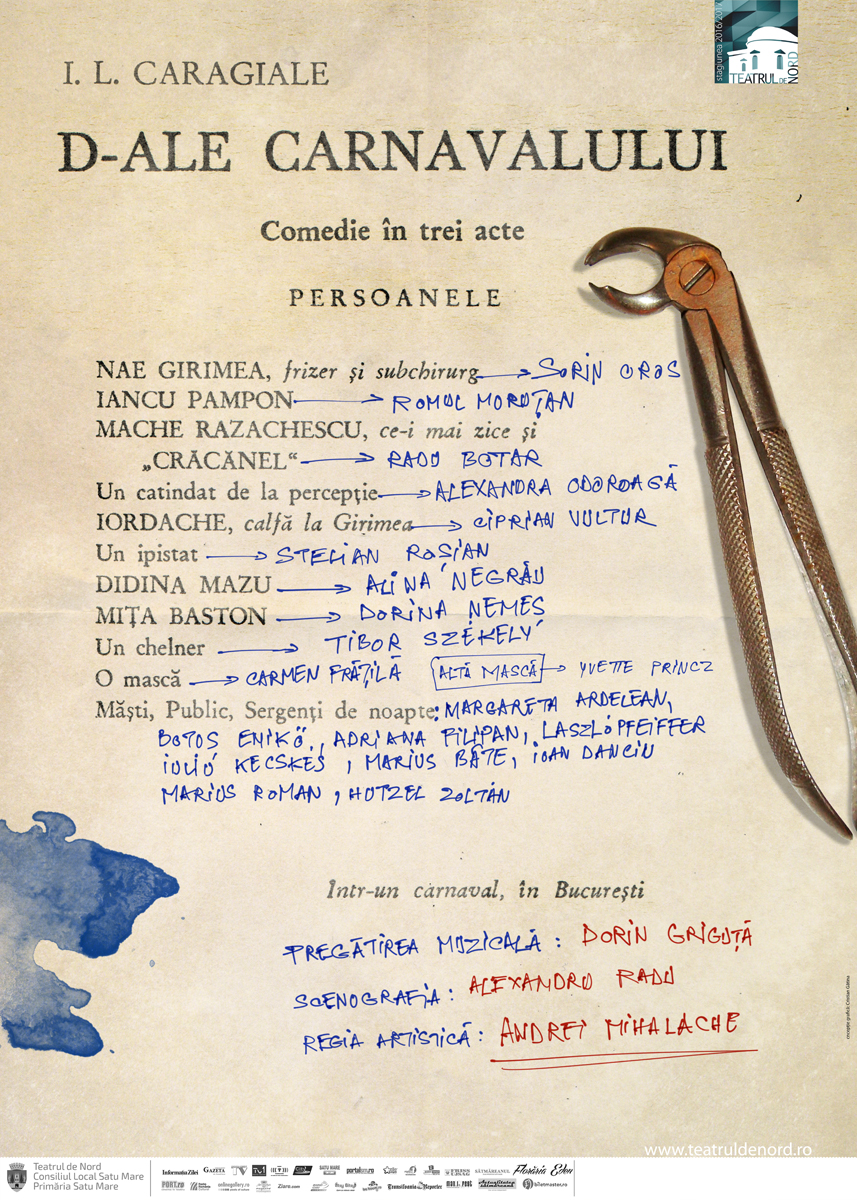 stagiunea 2016/2017
TEATRUL DE NORD
I. L. CARAGIALE
D-ALE CARNAVALULUI
Comedie în trei acte
PERSOANELE
NAE GIRIMEA, frizer și subchirurg → SORIN OROS
IANCU PAMPON → ROMUL MORUȚAN
MACHE RAZACHESCU, ce-i mai zice și
„CRĂCĂNEL“ → RADU BOTAR
Un catindat de la percepție → ALEXANDRA ODOROAGĂ
IORDACHE, calfă la Girimea → CIPRIAN VULTUR
Un ipistat → STELIAN ROȘIAN
DIDINA MAZU → ALINA NEGRĂU
MIȚA BASTON → DORINA NEMEȘ
Un chelner → TIBOR SZÉKELY
O mască → CARMEN FRĂȚILĂ ALTĂ MASCĂ → YVETTE PRINCZ
Măști, Public, Sergenți de noapte: MARGARETA ARDELEAN,
BOTOS ENIKŐ, ADRIANA FILIPAN, LASZLÓ PFEIFFER
IULIU KECSKES, MARIUS BÂTE, IOAN DANCIU
MARIUS ROMAN, HOTZEL ZOLTÁN
Într-un carnaval, în București
PREGĂTIREA MUZICALĂ: DORIN GRIGUȚĂ
SCENOGRAFIA: ALEXANDRU RADU
REGIA ARTISTICĂ: ANDREI MIHALACHE
www.teatruldenord.ro
Teatrul de Nord
Consiliul Local Satu Mare
Primăria Satu Mare
Informația Zilei GAZETA TV TV1 SATU MARE portalsm.ro SĂTMĂREANUL Florăria Eden
PORT.ro onlinegallery.ro Ziare.com Transilvania Reporter biletmaster.ro